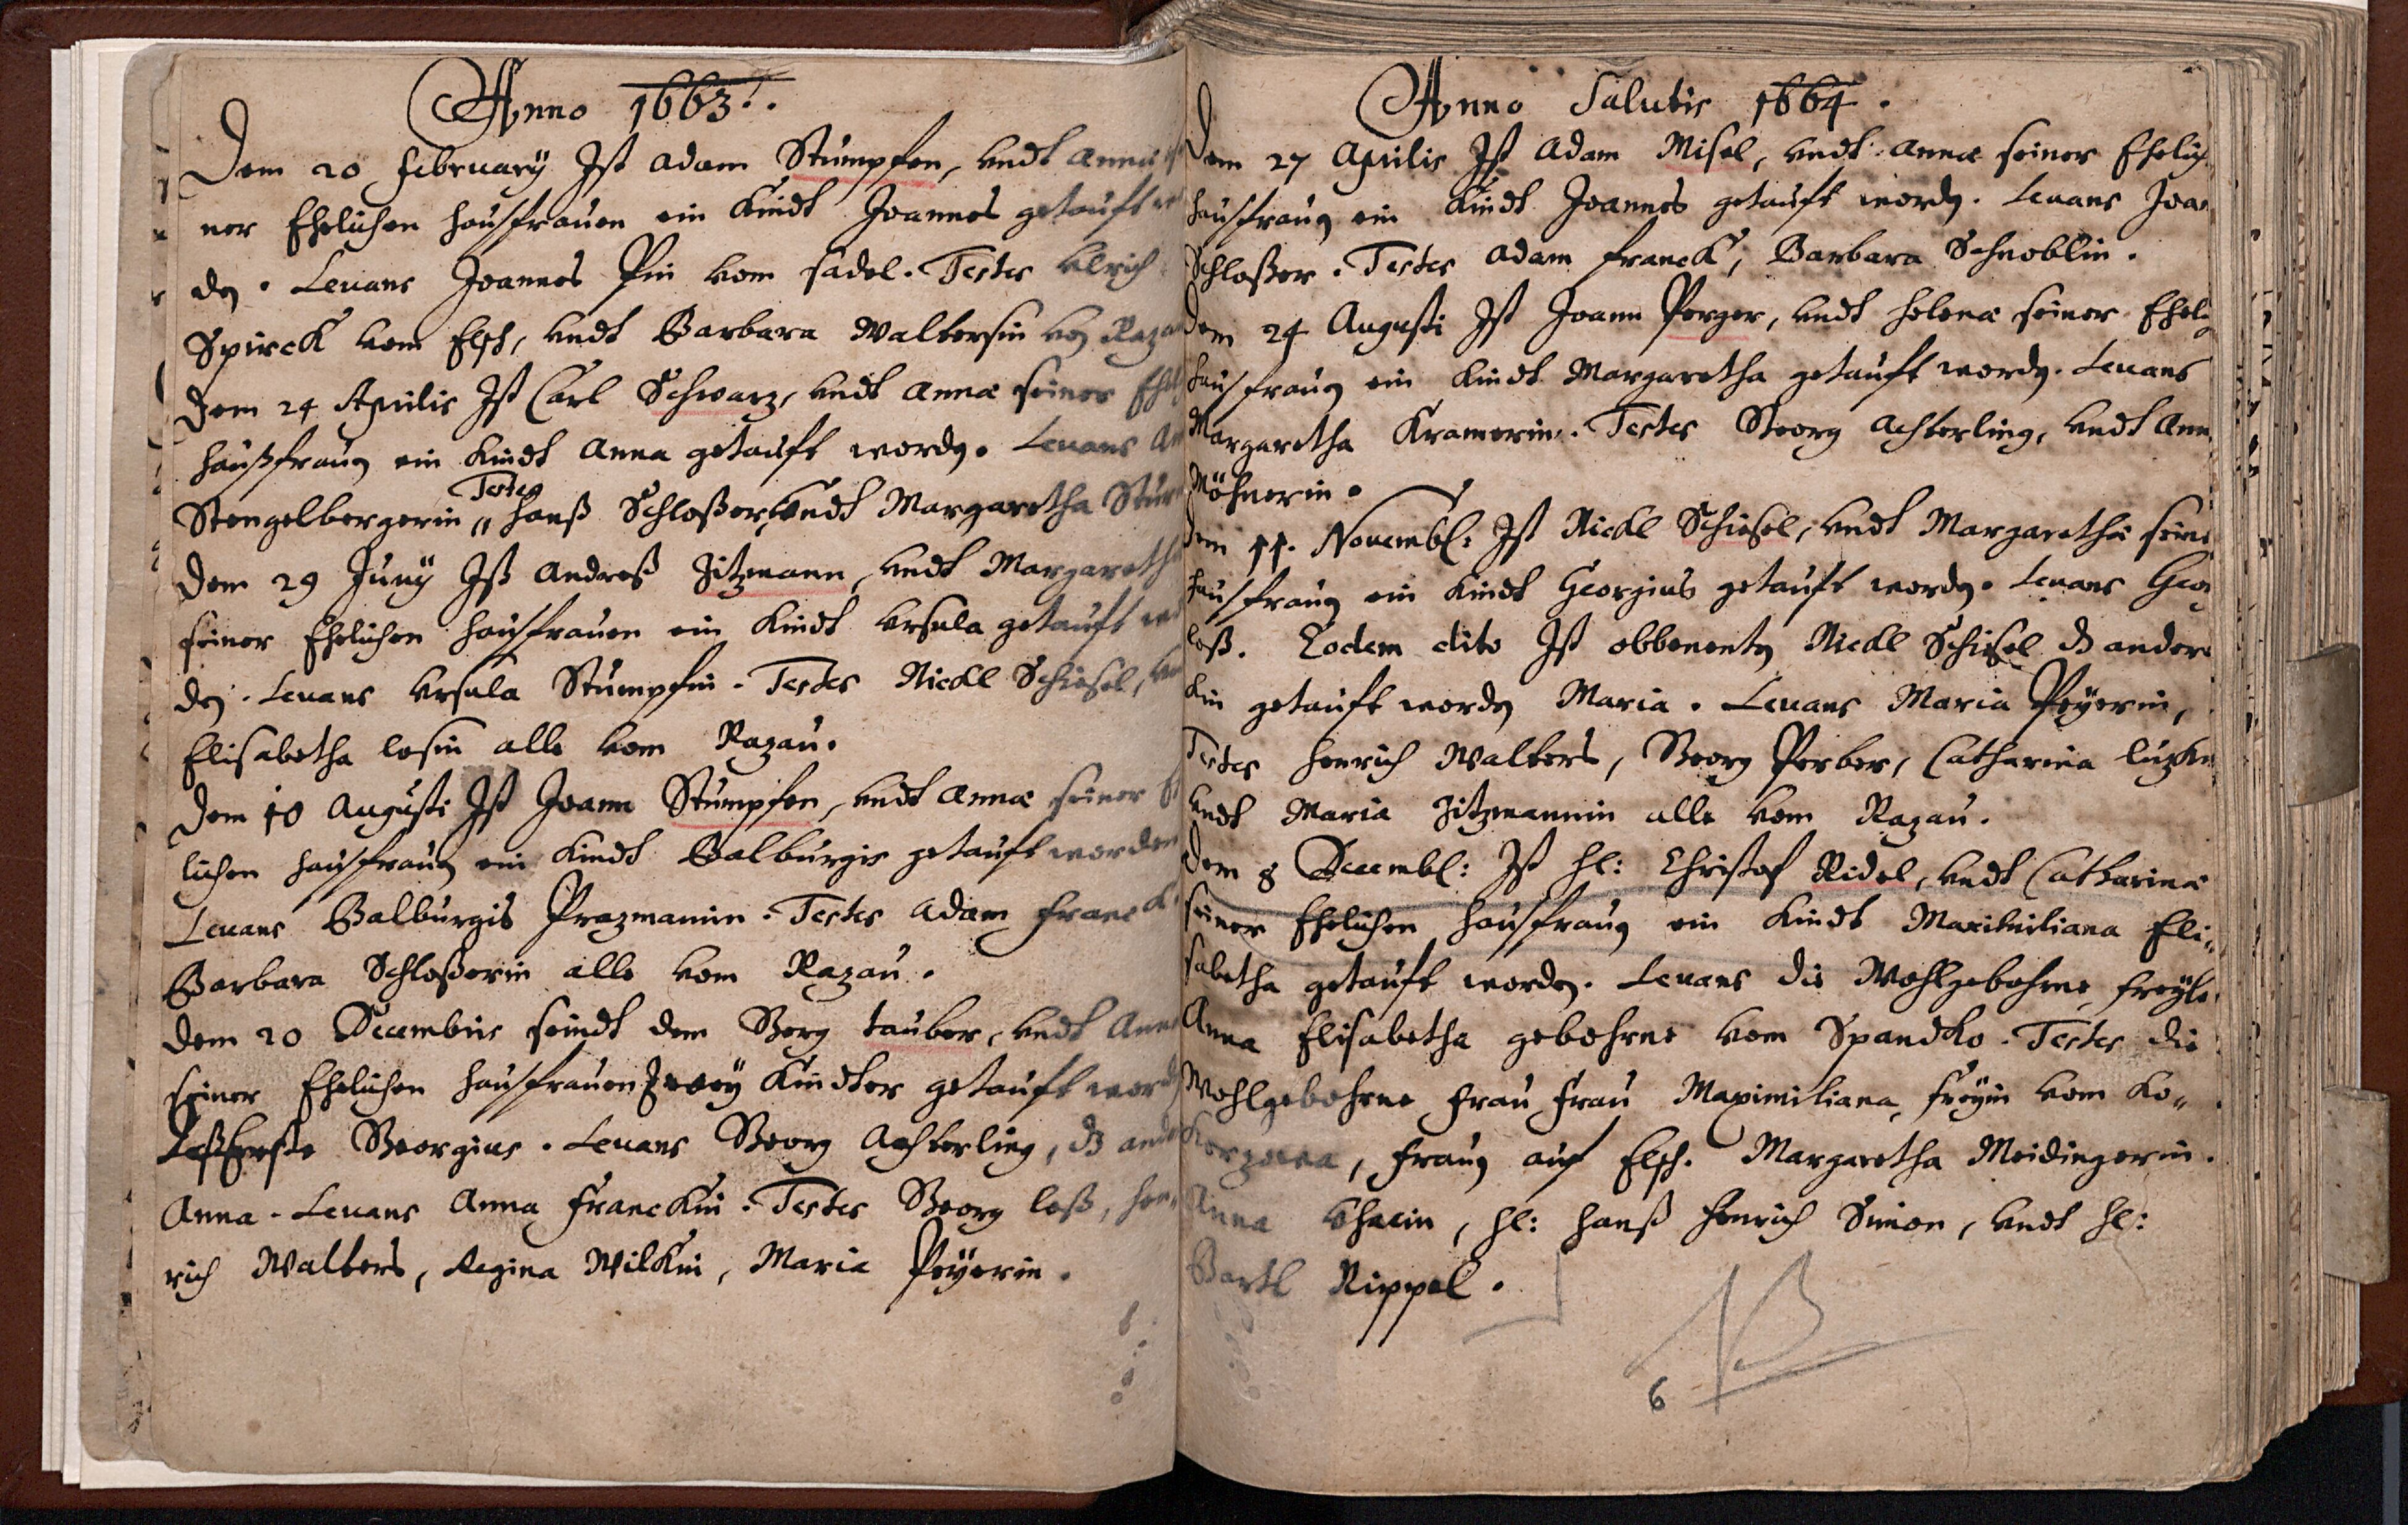 Anno 1663.
Dem 20 february Ist Adam Stumpfen, undt Anna
ner Ehelichen haußfrauen ein Kindt Joannes getauft
dn. Levans Joannes Pin vom sadel. Testes Ulrich
Spirck vom Elsch, undt Barbara Waltersin vn
Dem 24 Aprilis Ist Carl Schwarz, undt Annæ seiner
haußfraun ein Kindt Anna getauft wordn. Levans
Testes
Stengelbergerin " Hanß Schloßer, undt Margaretha
Dem 29 Juny Ist Andreß Zitzmann, undt Margaretha
seiner Ehelichen haußfrauen ein Kindt Ursula getauft
dn. Levans Ursula Stumpfin. Testes Nickl Schiesel,
Elisabetha losin alle vom Razau.
Dem 10 Augusti Ist Joann Stumpfen, undt Annæ seiner
lichen haußfraun ein Kindt Walburgis getauft worden
Levans Walburgis Prazmanin. Testes Adam Franck.
Barbara Schloßerin alle vom Razau.
Dem 20 Decembris seindt dem Georg tauber, undt Anna
seiner Ehelichen haußfrauen Zwey Kindter getauft
Erste Georgius. Levans Georg Achterling, dz
Anna. Levans Anna Franckin. Testes Georg loß, hen„
rich Walters, Regina Wilckin, Maria Peyerin.
Anno Salutis 1664.
Dem 27 Aprilis Ist Adam Misel, undt Annæ seiner Ehelich
haußfraun ein Kindt Joannes getauft wordn. Levans
Schloßer. Testes Adam Franck, Barbara Schnoblin.
Dem 24 Augusti Ist Joann Perger, undt Helenæ seiner
haußfraun ein Kindt Margaretha getauft wordn. Levans
Margaretha Kramerin. Testes Georg Achterling, undt Ann
Möhnerin.
Dem 11. Novembl: Ist Nickl Schiesel, undt Margarethæ
haußfraun ein Kindt Georgius getauft wordn. Levans
loß. Eodem dito Ist obbenentn Nickl Schiesel dz ander
Kin getauft wordn Maria. Levans Maria Peyerin,
Testes Henrich Walters, Georg Perber, Catharina
undt Maria Zitzmannin alle vom Razau.
Dem 8 Decembl: Ist Hl: Christof Ridel, undt Catharinæ
seiner Ehelichen haußfraun ein Kindt Maximiliana Eli„
sabetha getauft wordn. Levans die Wohlgebohrne freyle
Anna Elisabetha gebohrne vom Spandko. Testes die
Wohlgebohrne Frau Frau Maximiliana, freyin vom Ko„
fraun auf Elsch. Margaretha Meidingerin.
Anna Hl: Hanß Henrich Simon, undt Hl:
Bartl Rippel.
NB
6